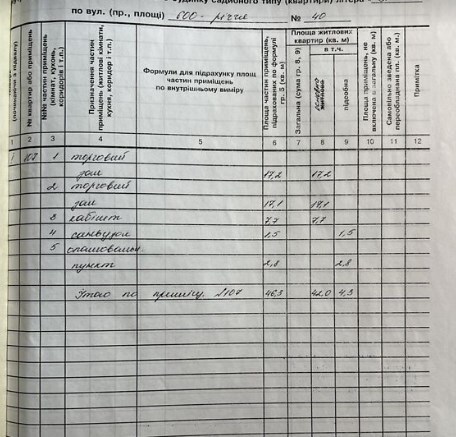 будинку садибного типу (квартири) літера
по вул. (пр., площі) 600-річчя № 40
№ квартир або приміщень
№№ частин приміщень (кімнат, кухонь, коридорів і т.п.)
Призначення частин приміщень (житлові кімнати, кухня, коридори і т.п.)
Формули для підрахунку площ частин приміщень по внутрішньому виміру
Площа частин приміщень, підрахованих по формулі гр. 5 (кв. м)
Площа житлових квартир (кв. м)
Загальна (сума гр. 8, 9)
в т.ч.
підсобна
Площа приміщень, не включена в загальну (кв. м)
Самовільно зведена або переобладнана пл. (кв. м.)
Примітка
1 2 3 4 5 6 7 8 9 10 11 12
1 107 1 торговий
зал 17,2 17,2
2 торговий
зал 17,1 17,1
3 кабінет 7,7 7,7
4 санвузол 1,5 1,5
5
пункт 2,8 2,8
Итого по приміщ. №107 46,3 42,0 4,3